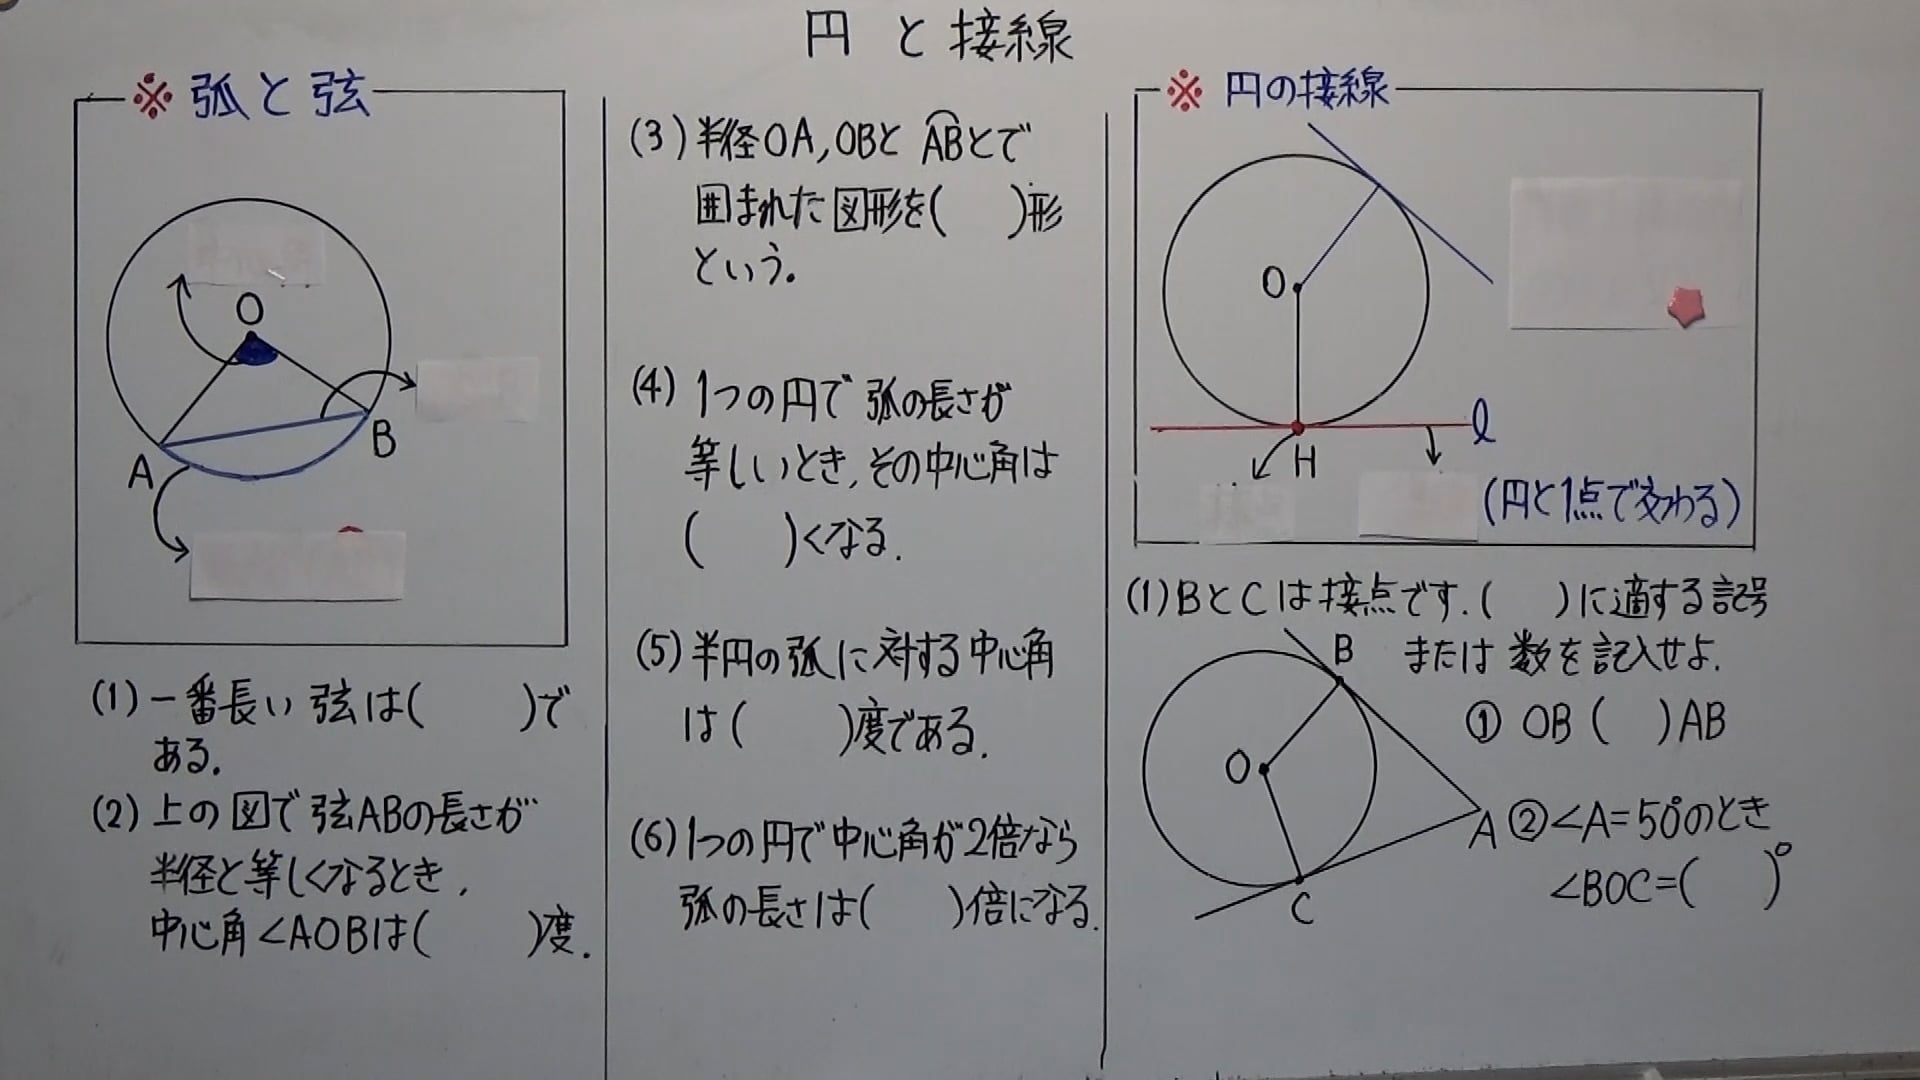 円と接線
※ 弧と弦
O
A
B
(1) 一番長い弦は(　　)で
ある.
(2) 上の図で弦ABの長さが
半径と等しくなるとき,
中心角∠AOBは(　　)度.
(3) 半径OA,OBと A͡Bとで
囲まれた図形を(　　)形
という。
(4) 1つの円で弧の長さが
等しいとき,その中心角は
(　　)くなる.
(5) 半円の弧に対する中心角
は(　　)度である.
(6) 1つの円で中心角が2倍なら
弧の長さは(　　)倍になる.
※ 円の接線
O
ℓ
H
(円と1点で交わる)
(1) BとCは接点です.(　　)に適する記号
または数を記入せよ.
B
O
A
C
① OB (　　) AB
② ∠A=50°のとき
∠BOC=(　　)°